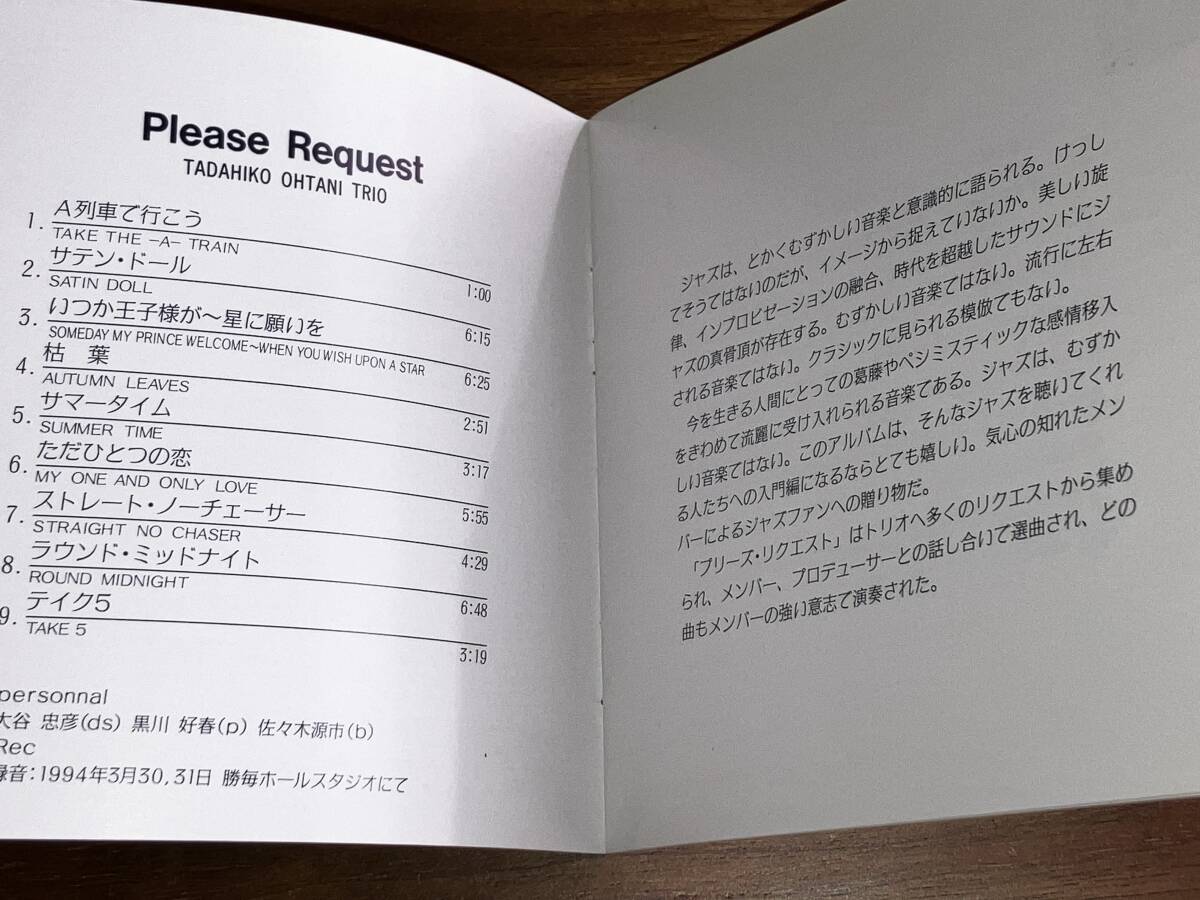 Please Request
TADAHIKO OHTANI TRIO
1. A列車で行こう
TAKE THE -A- TRAIN
1:00
2. サテン・ドール
SATIN DOLL
6:15
3. いつか王子様が〜星に願いを
SOMEDAY MY PRINCE WELCOME~WHEN YOU WISH UPON A STAR
6:25
4. 枯 葉
AUTUMN LEAVES
2:51
5. サマータイム
SUMMER TIME
3:17
6. ただひとつの恋
MY ONE AND ONLY LOVE
5:55
7. ストレート・ノーチェーサー
STRAIGHT NO CHASER
4:29
8. ラウンド・ミッドナイト
ROUND MIDNIGHT
6:48
9. テイク5
TAKE 5
3:19
personnal
大谷 忠彦(ds) 黒川 好春(p) 佐々木源市(b)
Rec
録音:1994年3月30,31日 勝毎ホールスタジオにて
ジャズは、とかくむずかしい音楽と意識的に語られる。けっし
てそうではないのだが、イメージから捉えていないか。美しい旋
律、インプロビゼーションの融合、時代を超越したサウンドにジ
ャズの真骨頂が存在する。むずかしい音楽ではない。流行に左右
される音楽ではない。クラシックに見られる模倣でもない。
今を生きる人間にとっての葛藤やペシミスティックな感情移入
をきわめて流麗に受け入れられる音楽である。ジャズは、むずか
しい音楽ではない。このアルバムは、そんなジャズを聴いてくれ
る人たちへの入門編になるならとても嬉しい。気心の知れたメン
バーによるジャズファンへの贈り物だ。
「プリーズ・リクエスト」はトリオへ多くのリクエストから集め
られ、メンバー、プロデューサーとの話し合いで選曲され、どの
曲もメンバーの強い意志で演奏された。